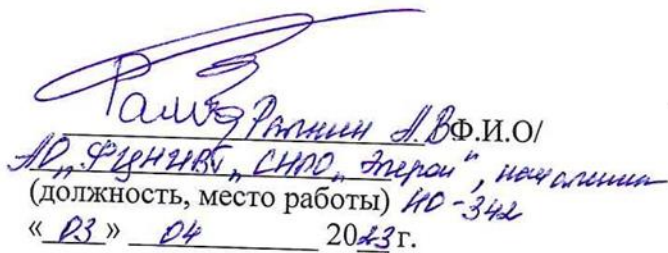 А.В Ф.И.О/
АО „ФЦНИВТ „СНПО „Элерон“, начальник
(должность, место работы) НО-342
«03» 04 2023 г.